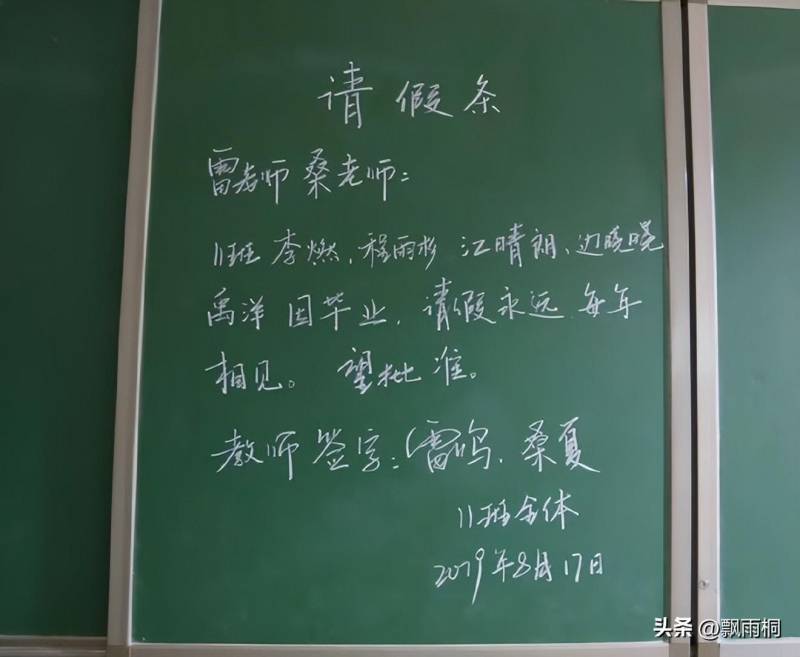 请假条
雷老师 桑老师：
11班 李燃、程雨杉 江晴朗、边晓晓
禹洋 因毕业，请假永远 每年
相见。 望批准。
教师签字：雷鸣、桑夏
11班全体
2019年8月17日
头条 @飘雨桐